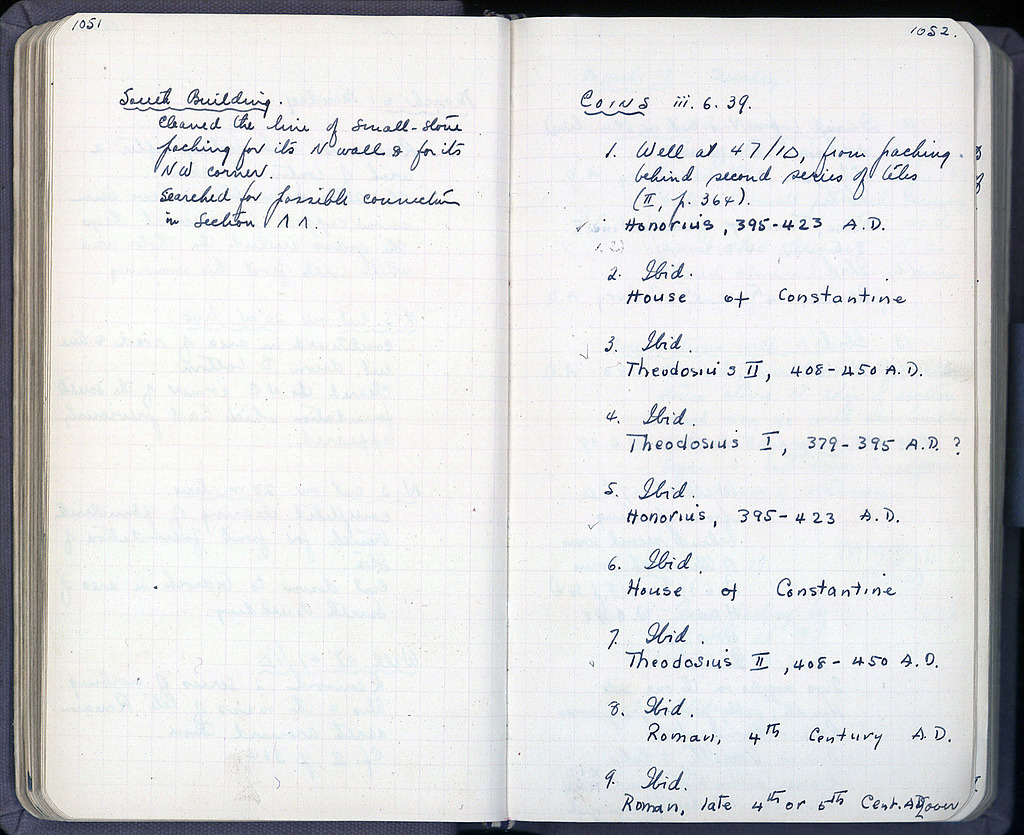 1051
South Building.
cleaned the line of small-stone
packing for its N wall & for its
NW corner.
Searched for possible connection
in Section ΛΛ.
1052.
COINS iii. 6. 39.
1. Well at 47/ΙΔ, from packing
behind second series of tiles
(II, p. 364).
✓ Honorius, 395-423 A.D.
2. Ibid.
House of Constantine
3. Ibid.
✓ Theodosius II, 408-450 A.D.
4. Ibid.
Theodosius I, 379-395 A.D. ?
5. Ibid.
✓ Honorius, 395-423 A.D.
6. Ibid.
House of Constantine
7. Ibid.
Theodosius II, 408-450 A.D.
8. Ibid.
Roman, 4th Century A.D.
9. Ibid.
Roman, late 4th or 5th Cent. A.D. over